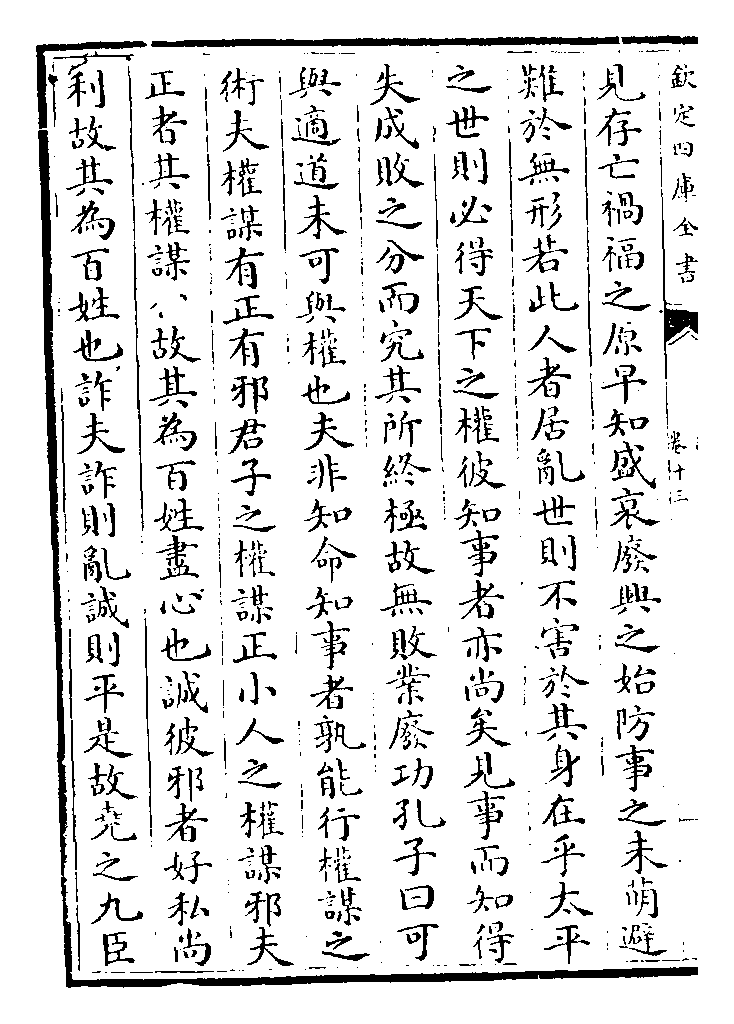 欽定四庫全書
卷十三
見存亡禍福之原早知盛衰廢興之始防事之未萌避
難於無形若此人者居亂世則不害於其身在乎太平
之世則必得天下之權彼知事者亦尚矣見事而知得
失成敗之分而究其所終極故無敗業廢功孔子曰可
與適道未可與權也夫非知命知事者孰能行權謀之
術夫權謀有正有邪君子之權謀正小人之權謀邪夫
正者其權謀公故其為百姓盡心也誠彼邪者好私尚
利故其為百姓也詐夫詐則亂誠則平是故堯之九臣